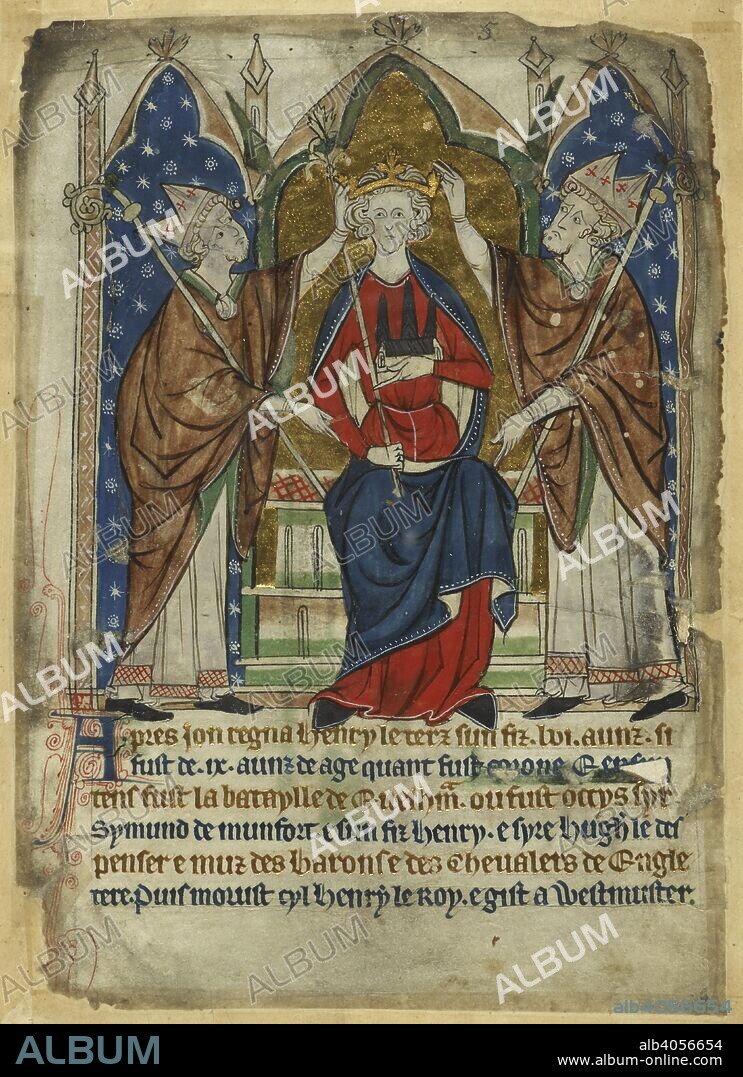 5
Apres Jon regna Henry le terz sun fiz. lvi. aunz. si
fust de .ix. aunz de age quant fust corone E en sun
tens fust la bataylle de Evesham. ou fust occys syr
Symund de munfort e sun fiz Henry. e syre Hugh le des
penser e muz des barons e des Chevalers de Engle
tere. Puis morust cyl Henry le Roy. e gist a Westmuster.
ALBUM
alb4056654
ALBUM
alb4056654
www.album-online.com